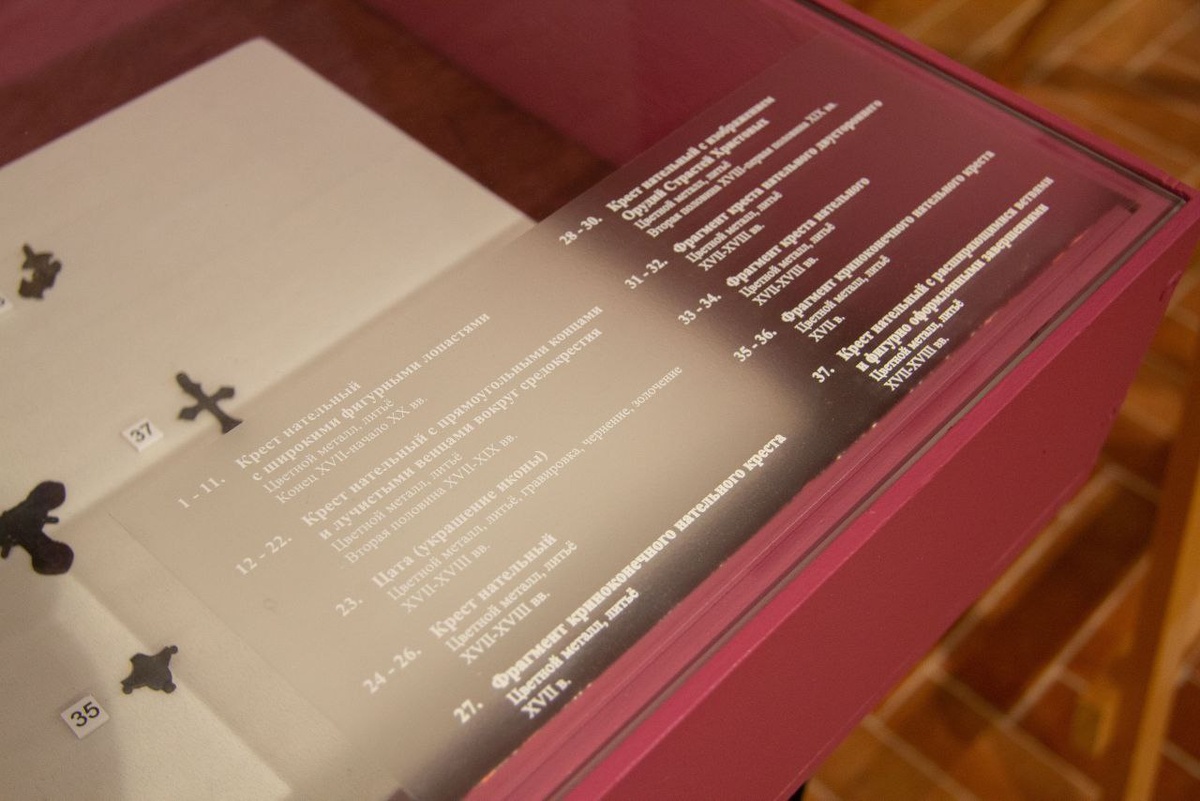 1 - 11. Крест нательный
с широкими фигурными лопастями
Цветной металл, литьё
Конец XVII-начало XX вв.
12 - 22. Крест нательный с прямоугольными концами
и лучистыми венцами вокруг средокрестия
Цветной металл, литьё
Вторая половина XVII-XIX вв.
23. Цата (украшение иконы)
Цветной металл, литьё, гравировка, чернение, золочение
XVII-XVIII вв.
24 - 26. Крест нательный
Цветной металл, литьё
XVII-XVIII вв.
27. Фрагмент криноконечного нательного креста
Цветной металл, литьё
XVII в.
28 - 30. Крест нательный с изображением
Орудий Страстей Христовых
Цветной металл, литьё
Вторая половина XVIII-первая половина XIX вв.
31 - 32. Фрагмент креста нательного двустороннего
Цветной металл, литьё
XVII-XVIII вв.
33 - 34. Фрагмент креста нательного
Цветной металл, литьё
XVII-XVIII вв.
35 - 36. Фрагмент криноконечного нательного креста
Цветной металл, литьё
XVII в.
37. Крест нательный с расширяющимися ветвями
и фигурно оформленными завершениями
Цветной металл, литьё
XVII-XVIII вв.
37
35